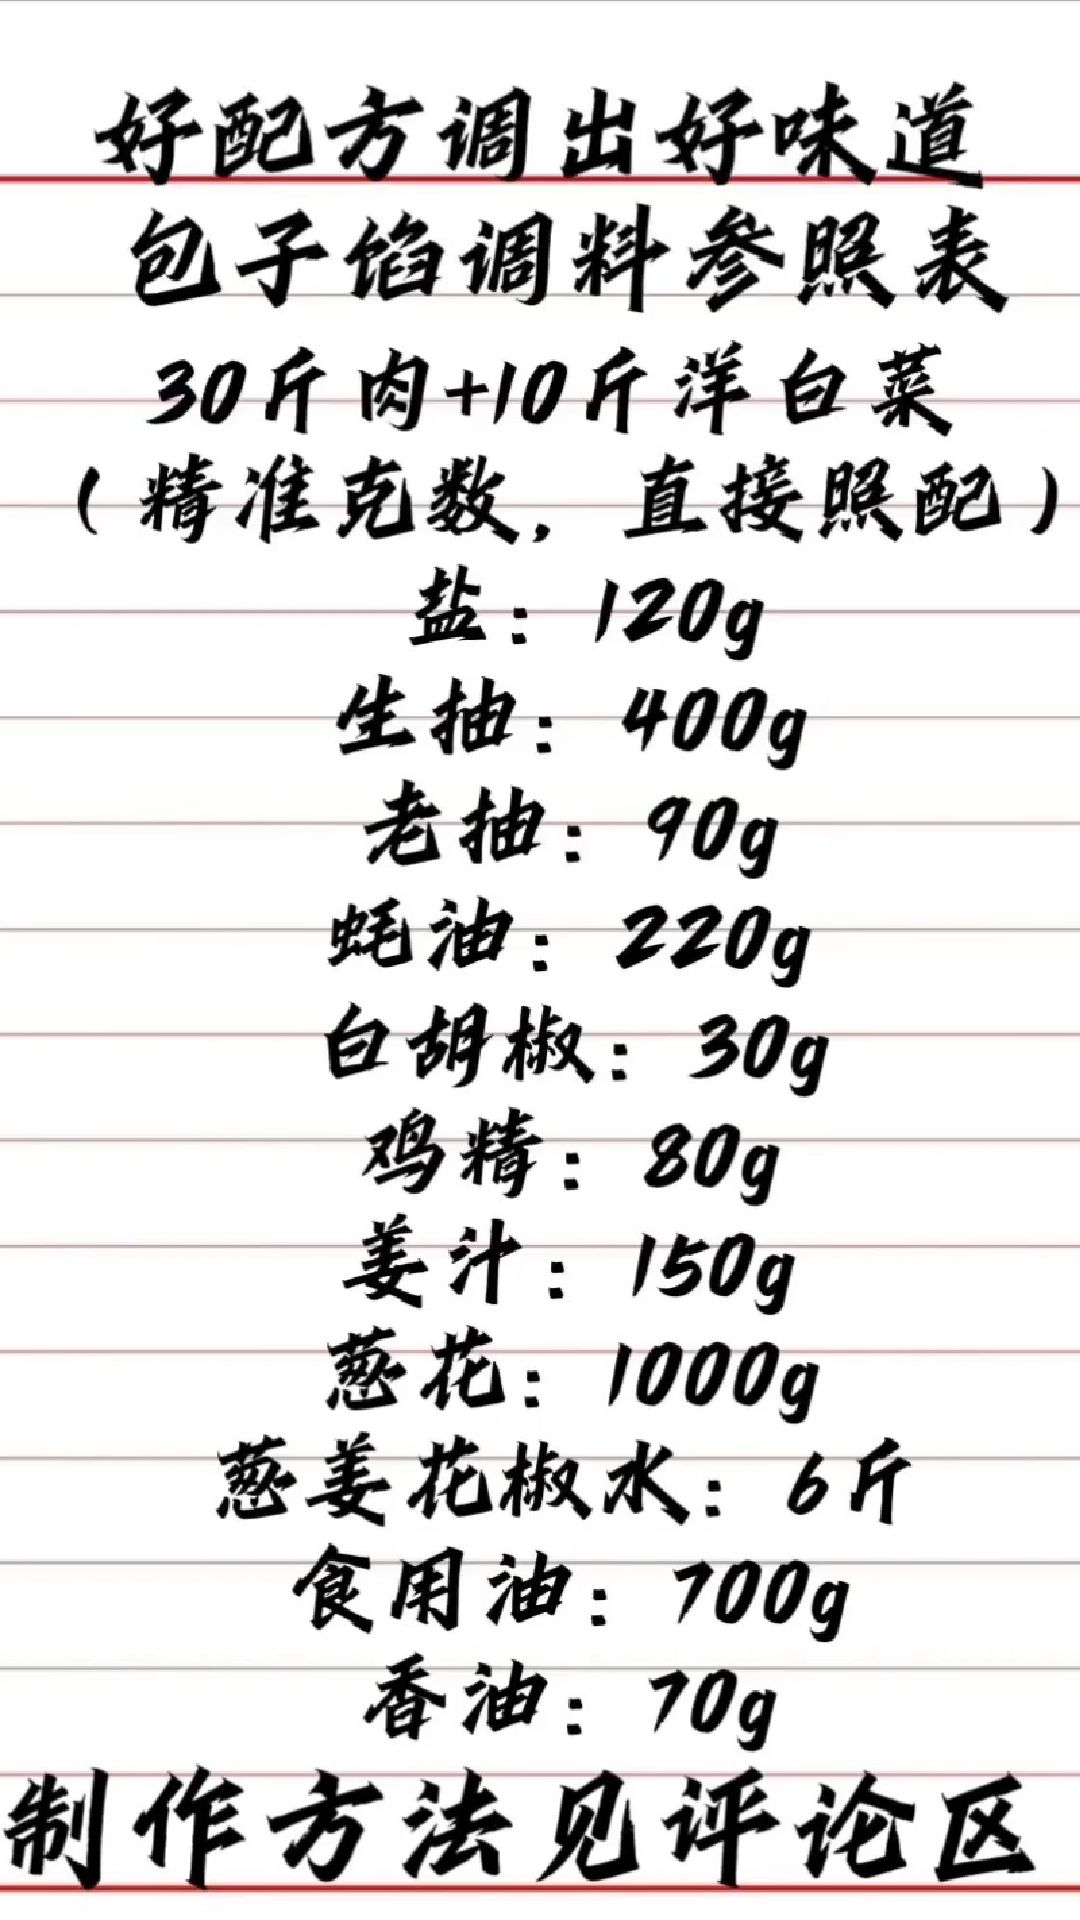 好配方调出好味道
包子馅调料参照表
30斤肉+10斤洋白菜
（精准克数，直接照配）
盐：120g
生抽：400g
老抽：90g
蚝油：220g
白胡椒：30g
鸡精：80g
姜汁：150g
葱花：1000g
葱姜花椒水：6斤
食用油：700g
香油：70g
制作方法见评论区